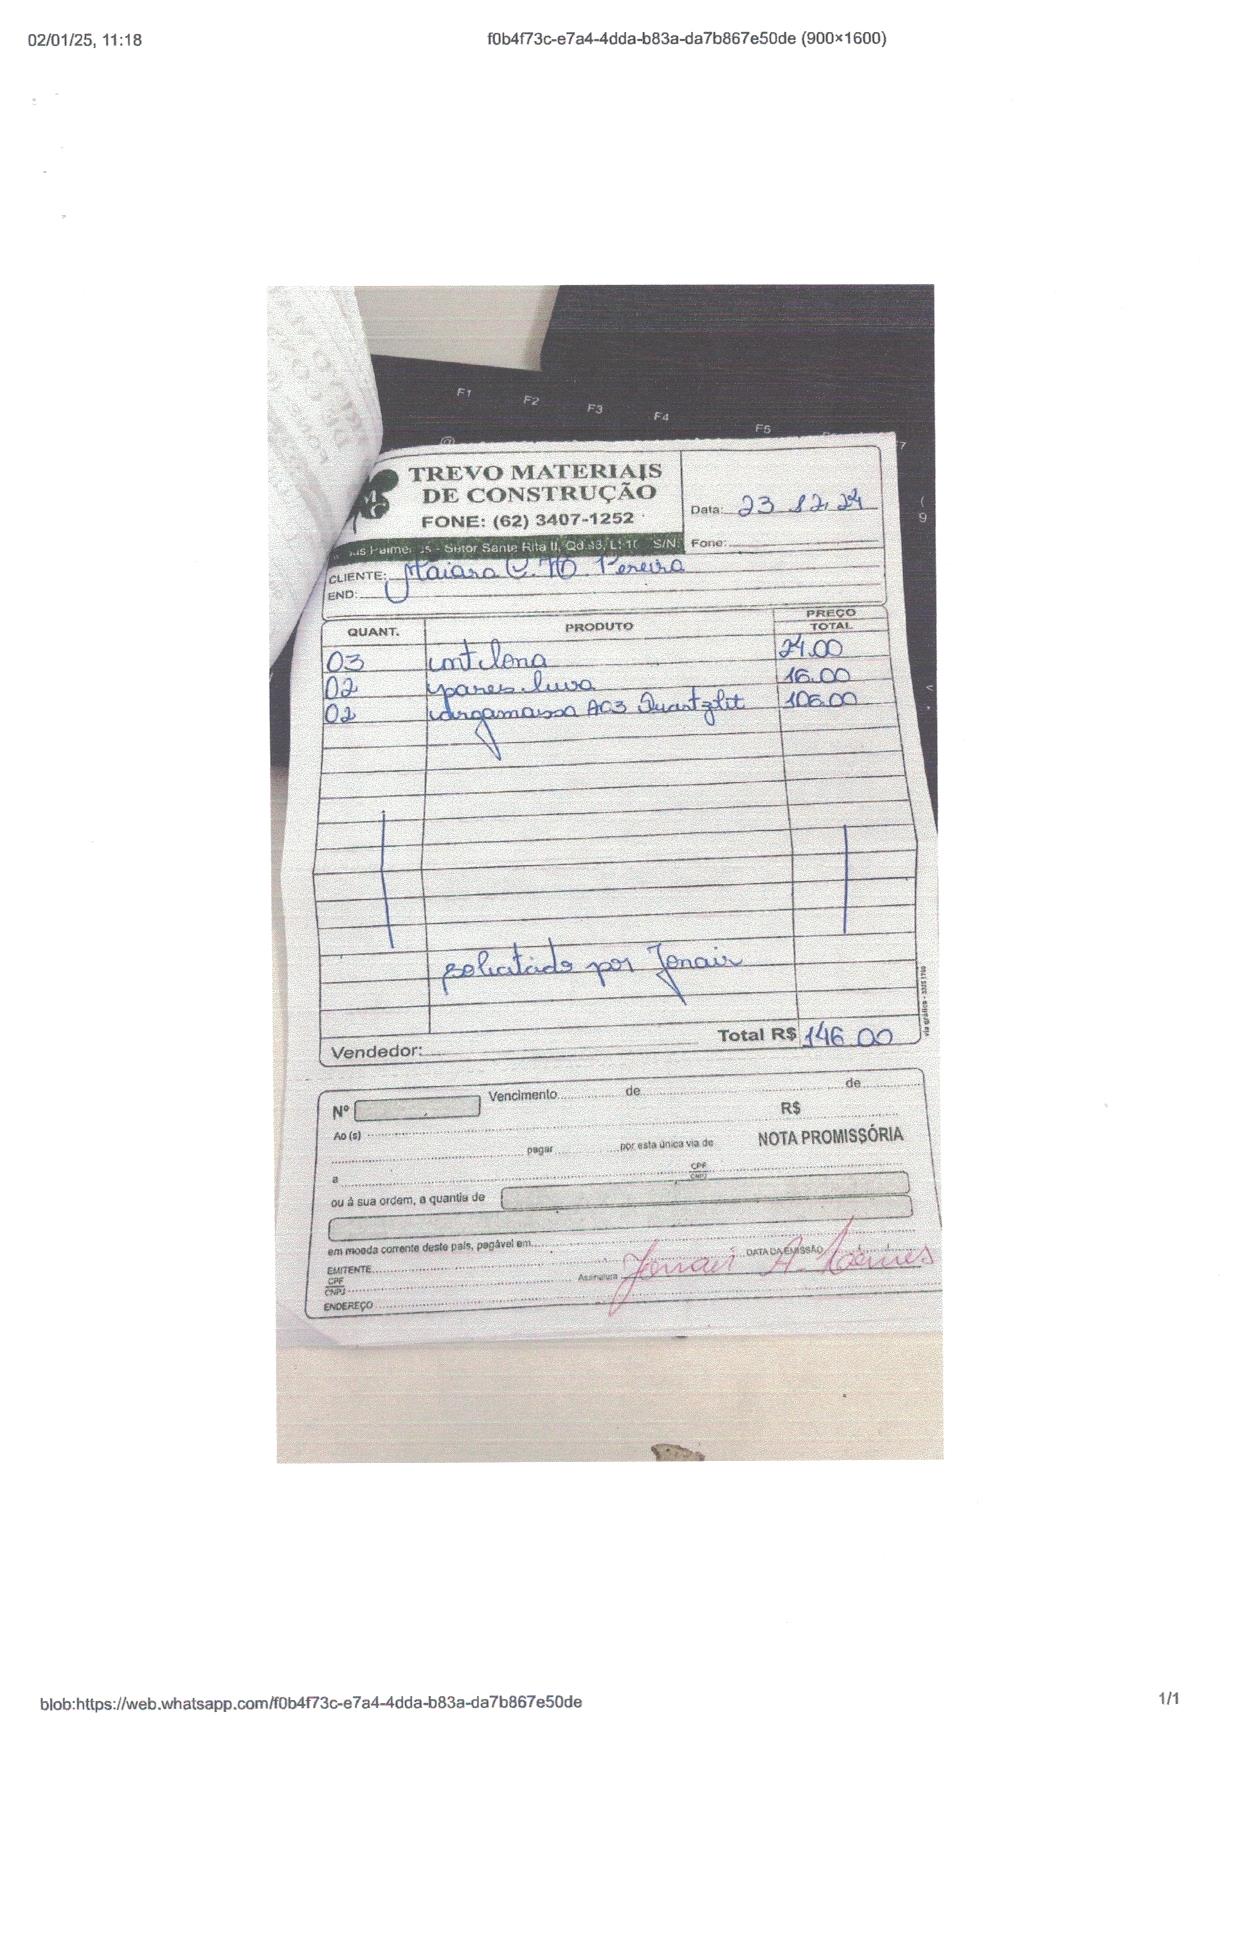 02/01/25, 11:18 f0b4f73c-e7a4-4dda-b83a-da7b867e50de (900×1600)
F1 F2 F3 F4 F5 F7
@
( 9
TREVO MATERIAIS
DE CONSTRUÇÃO
FONE: (62) 3407-1252
Data: 23 12 24
- Setor Santa Rita II, Qd.33, S/N
Fone:
CLIENTE: Maiara Pereira
END:
QUANT. PRODUTO PREÇO TOTAL
03 mt lona 24.00
02 pares luva 16.00
02 argamassa AC3 Quartzlit 106.00
solicitado por Jonair
Vendedor: Total R$ 146.00
Nº Vencimento de de
R$
Ao (s)
pagar por esta única via de NOTA PROMISSÓRIA
a CPF CNPJ
ou à sua ordem, a quantia de
em moeda corrente deste país, pagável em
EMITENTE DATA DA EMISSÃO / /
CPF
CNPJ
Assinatura Jonair A.
ENDEREÇO
blob:https://web.whatsapp.com/f0b4f73c-e7a4-4dda-b83a-da7b867e50de 1/1